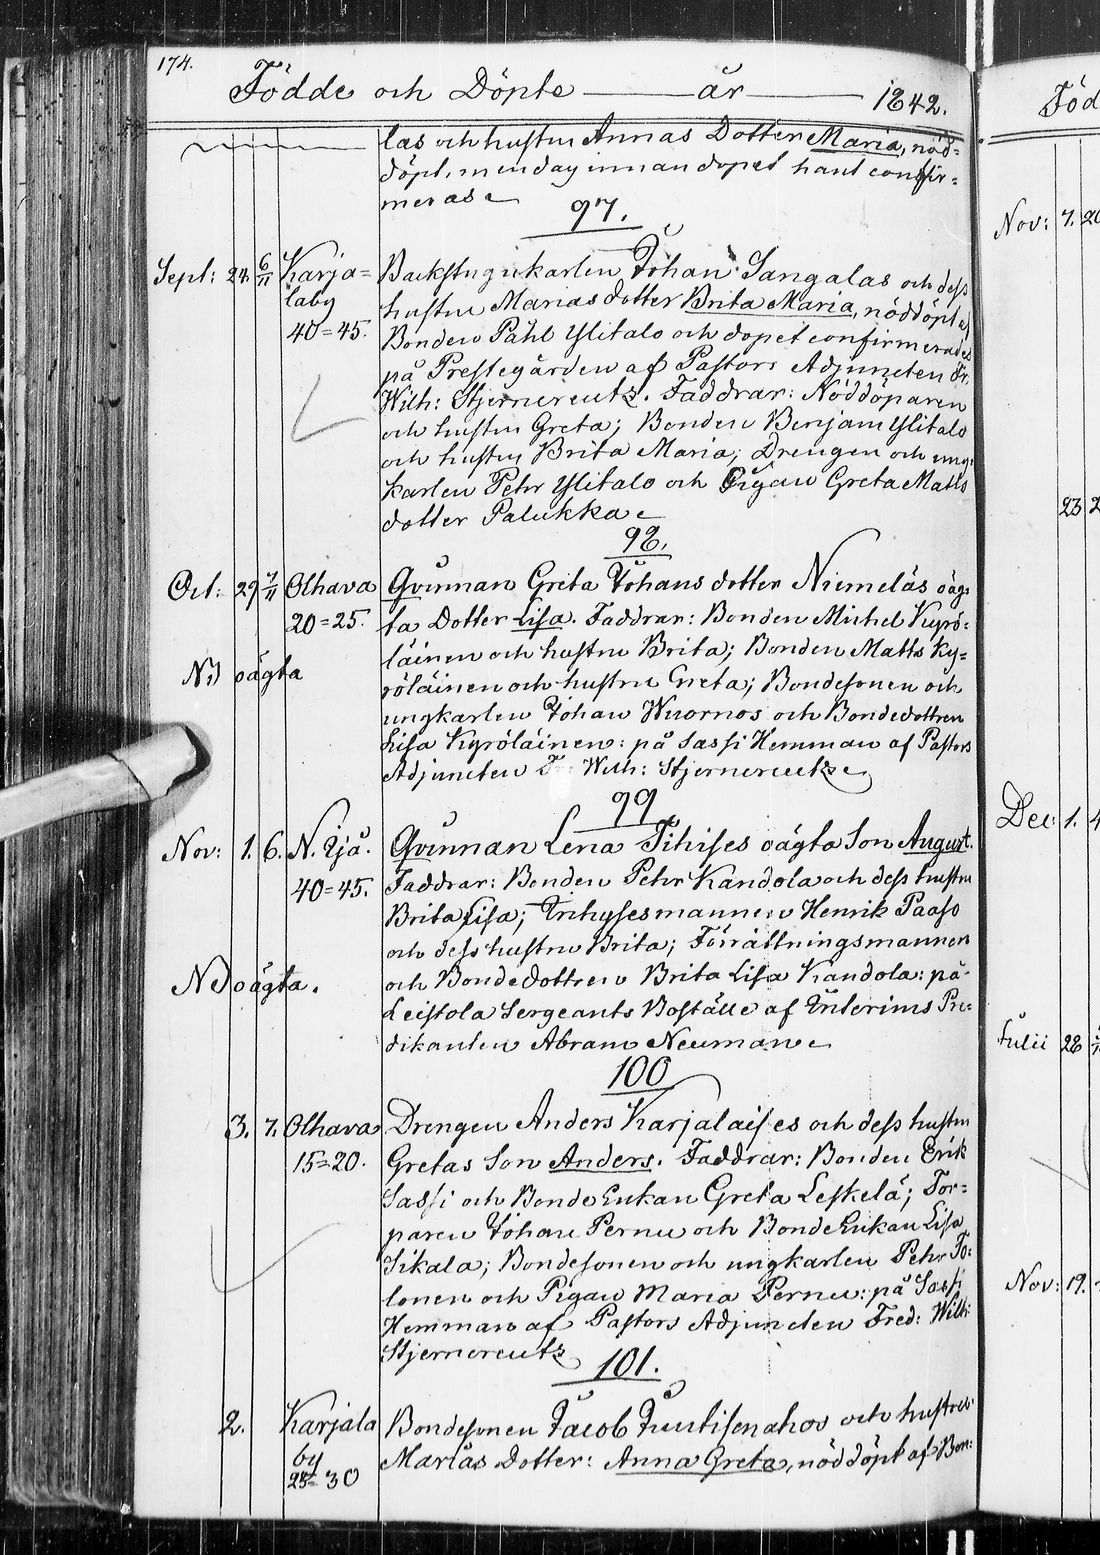 174.
Födde och Döpte — år — 1842.
las och hustru Annas Dotter Maria, nöd=
döpt, men dog innan dopet hant confir=
meras
97.
Sept: 24. 6/11 Karja=
laby
40=45.
Backstugukarlen Johan Sangalas och dess
hustru Marias dotter Brita Maria, nöddöpt af
Bonden Påhl Ylitalo och dopet confirmerades
på Prestegården af Pastors Adjuncten Fr.
Wilh: Stjerncreutz. Faddrar: Nöddöparen
och hustru Greta; Bonden Benjam Ylitalo
och hustru Brita Maria; Drengen och ung=
karlen Pehr Ylitalo och Pigan Greta Matts
dotter Palukka
98.
Oct: 29 7/11 Olhava
20=25.
oägta
Qvinnan Greta Johans dotter Niemeläs oäg=
ta Dotter Lisa. Faddrar: Bonden Michel Kyrö=
läinen och hustru Brita; Bonden Matts Ky=
röläinen och hustru Greta; Bondesonen och
ungkarlen Johan Wuornos och Bondedottren
Lisa Kyröläinen: på Sassi Hemman af Pastors
Adjuncten F. Wilh: Stjerncreutz
99
Nov: 1. 6. N. Ijå.
40=45.
oägta.
Qvinnan Lena Tihises oägta Son August.
Faddrar: Bonden Pehr Kandola och dess hustru
Brita Lisa; Inhysesmannen Henrik Paaso
och dess hustru Brita; Förrättningsmannen
och Bondedottren Brita Lisa Kandola: på
Leistola Sergeants Boställe af Interims Pre=
dikanten Abram Neuman
100
3. 7. Olhava
15=20.
Drengen Anders Karjalaises och dess hustru
Gretas Son Anders. Faddrar: Bonden Erik
Sassi och BondeEnkan Greta Leskelä; Tor=
paren Johan Pernu och BondeEnkan Lisa
Sikala; Bondesonen och ungkarlen Pehr To=
lonen och Pigan Maria Pernu: på Sassi
Hemman af Pastors Adjuncten Fred: Wilh:
Stjerncreutz
101.
2. Karjala
by
25=30
Bondesonen Jacob Juutisenahos och hustrus
Marias Dotter: Anna Greta, nöddöpt af Bon:
Föd
Nov: 7. 20
23 2
Dec: 1. 4
Julii 28
Nov: 19.